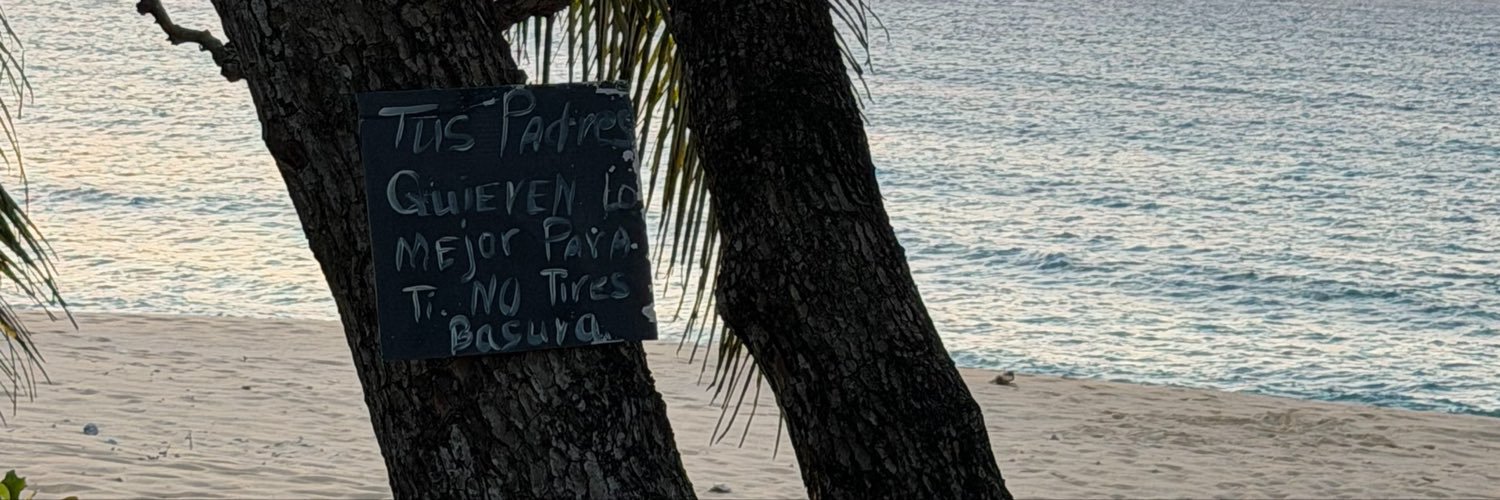 Tus Padres
Quieren lo
Mejor Para
Ti. No Tires
Basura